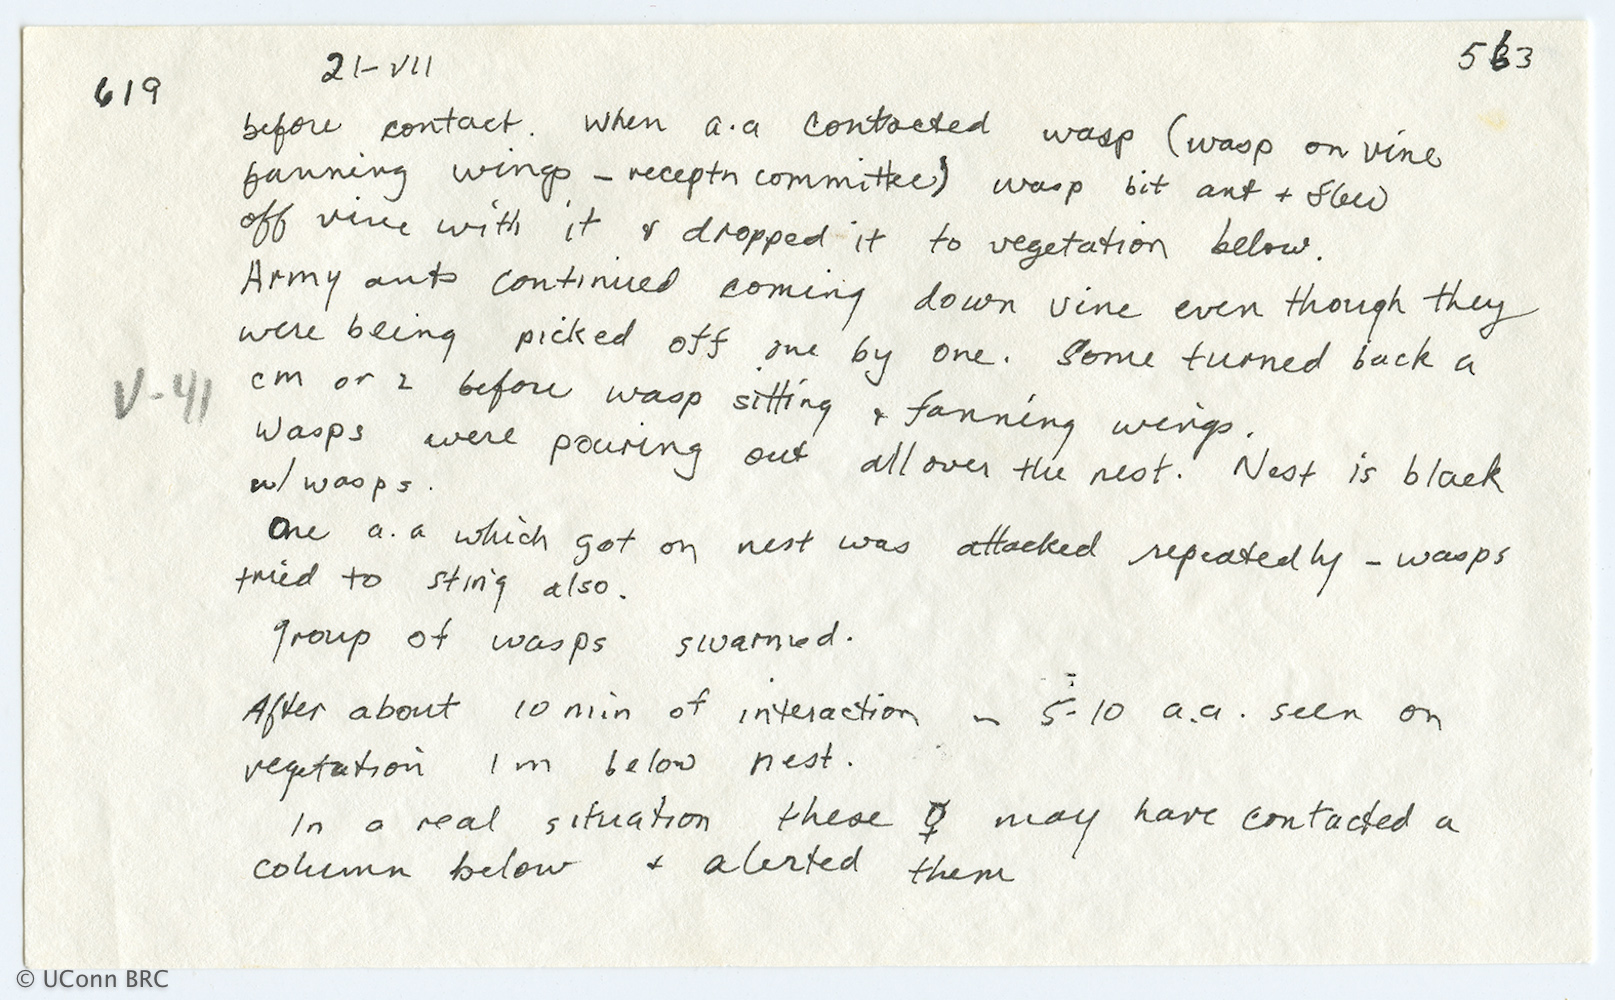 21-VII
563
619
before contact. When a.a contacted wasp (wasp on vine
fanning wings - receptn committee) wasp bit ant + flew
off vine with it & dropped it to vegetation below.
Army ants continued coming down vine even though they
were being picked off one by one. Some turned back a
cm or 2 before wasp sitting & fanning wings.
V-41
Wasps were pouring out all over the nest. Nest is black
w/ wasps.
One a.a which got on nest was attacked repeatedly - wasps
tried to sting also.
Group of wasps swarmed.
After about 10 min of interaction - 5-10 a.a. seen on
vegetation 1 m below nest.
In a real situation these may have contacted a
column below + alerted them
© UConn BRC